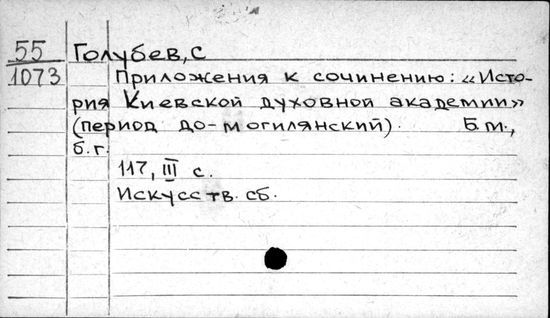 55 Голубев, С
1073 Приложения к сочинению: «Исто-
рия Киевской духовной академии»
(период до-могилянский). Б.м.,
б.г.
117, III с.
Искусств. сб.